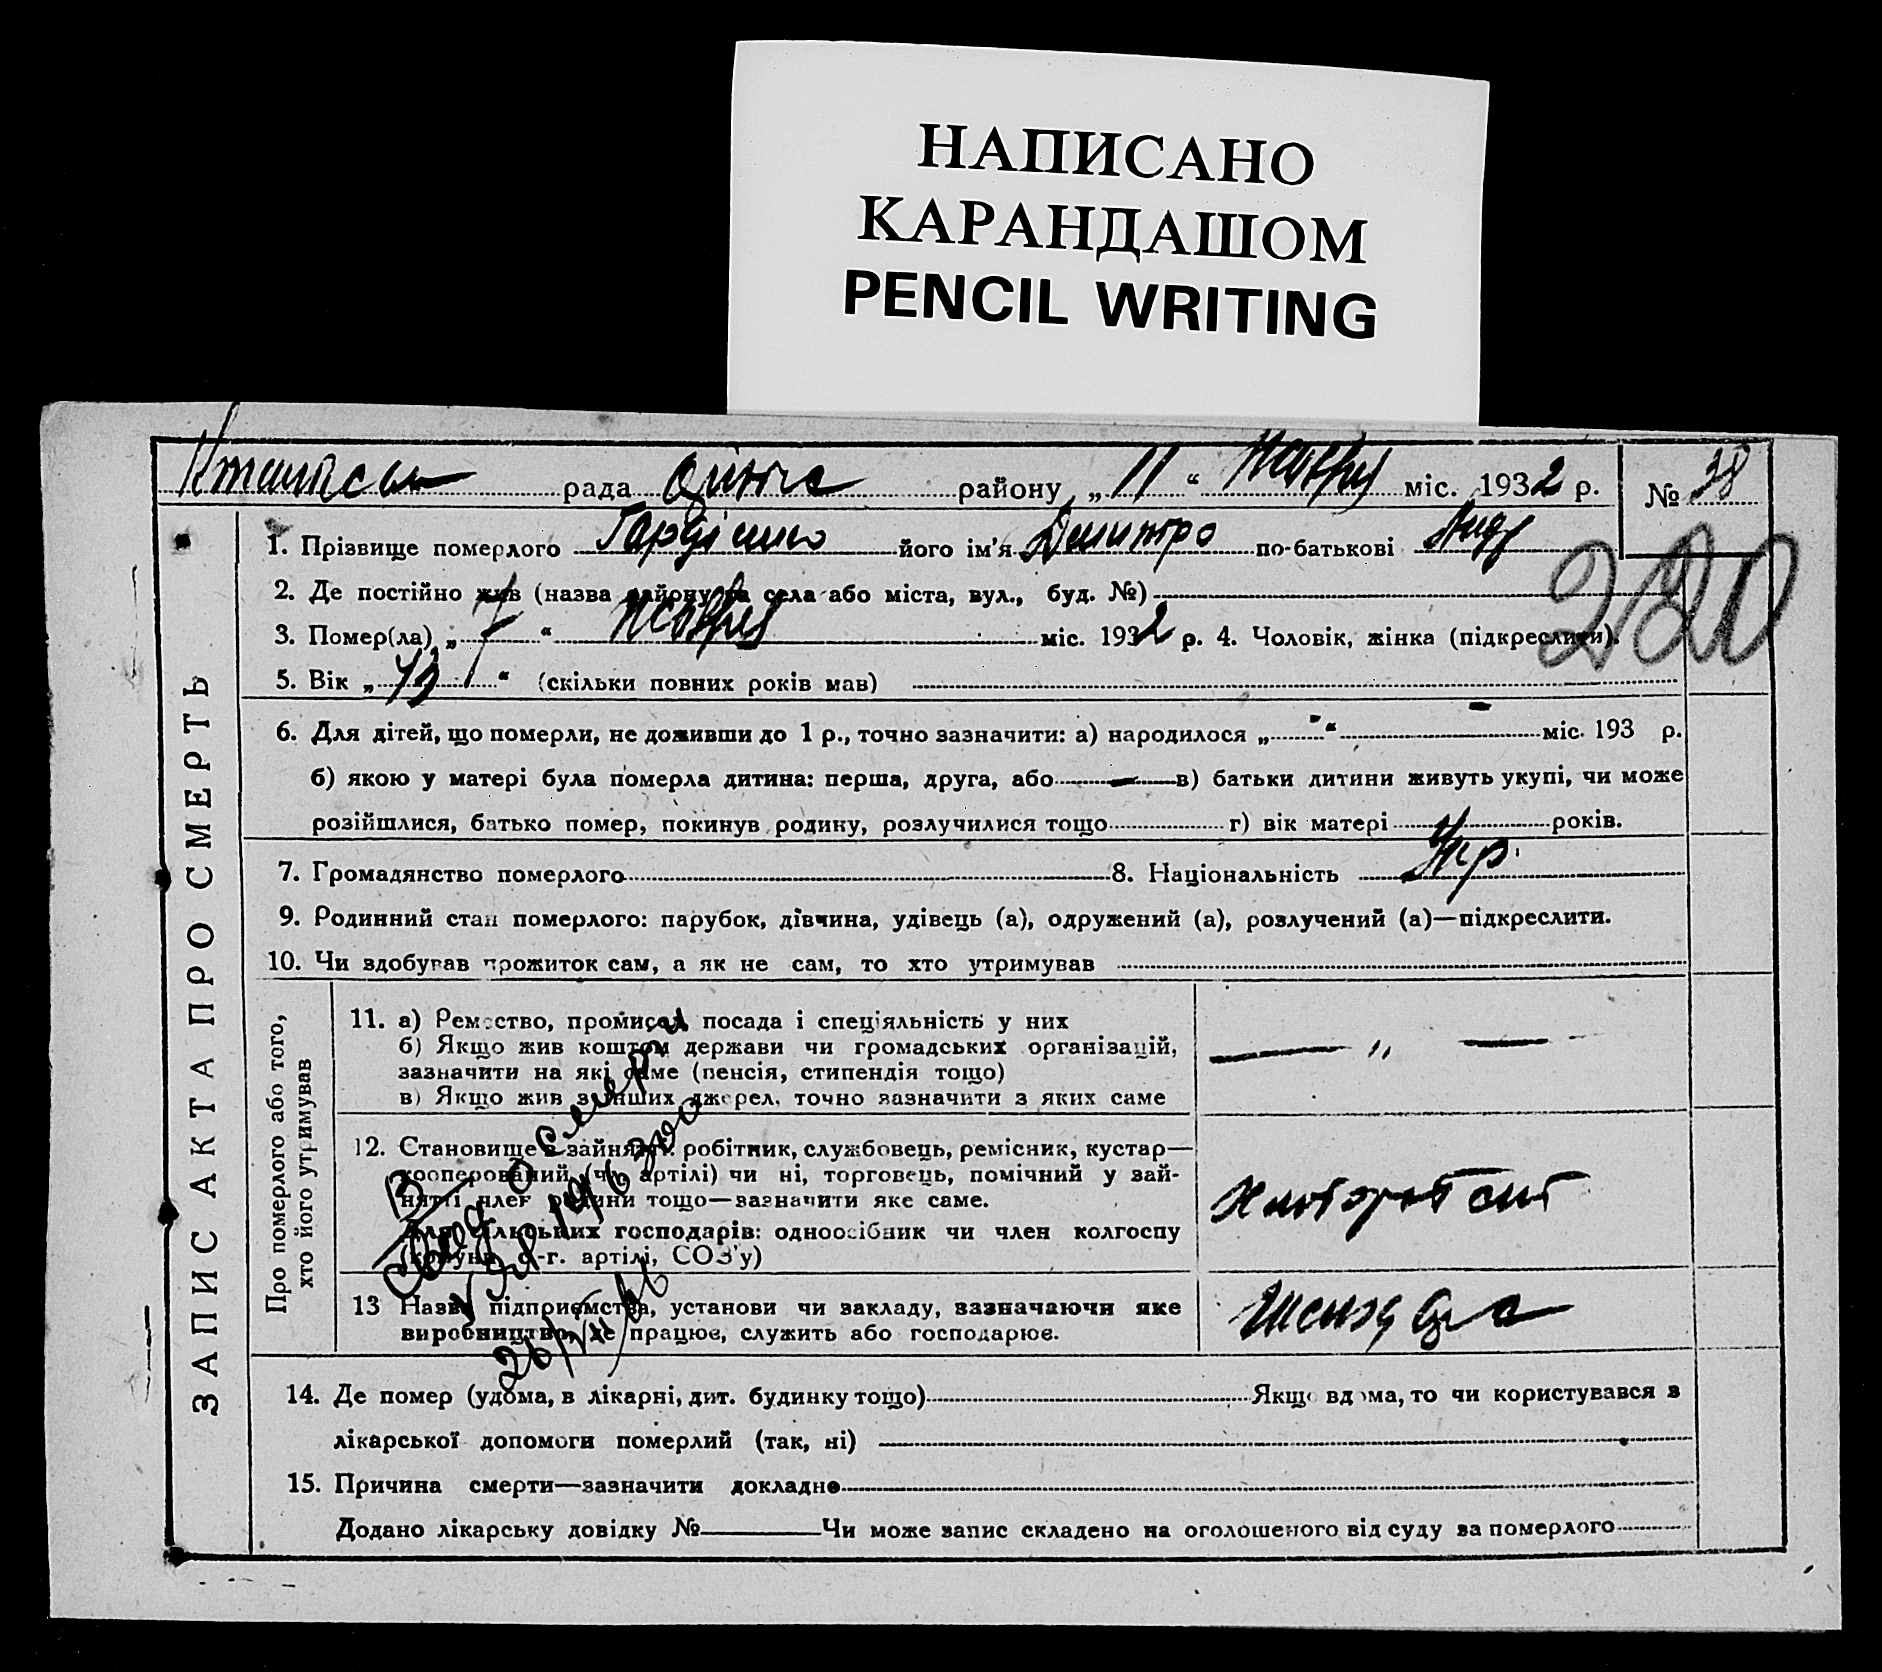 НАПИСАНО
КАРАНДАШОМ
PENCIL WRITING
рада району „ 11 “ Жовтня міс. 1932 р. № 38
1. Прізвище померлого його ім'я Дмитро по-батькові Анд
220
2. Де постійно жив (назва району та села або міста, вул., буд. №)
3. Помер(ла) „ 7 “ Жовтня міс. 1932 р. 4. Чоловік, жінка (підкреслити).
5. Вік „ “ (скільки повних років мав)
6. Для дітей, що померли, не доживши до 1 р., точно зазначити: а) народилося „ - “ - міс. 193 р.
б) якою у матері була померла дитина: перша, друга, або — в) батьки дитини живуть укупі, чи може
розійшлися, батько помер, покинув родину, розлучилися тощо г) вік матері років.
7. Громадянство померлого 8. Національність Укр.
9. Родинний стан померлого: парубок, дівчина, удівець (а), одружений (а), розлучений (а)—підкреслити.
10. Чи здобував прожиток сам, а як не сам, то хто утримував
ЗАПИС АКТА ПРО СМЕРТЬ
Про померлого або того,
хто його утримував
11. а) Ремество, промисел посада і спеціяльність у них
б) Якщо жив коштом держави чи громадських організацій,
зазначити на які саме (пенсія, стипендія тощо)
в) Якщо жив з інших джерел, точно зазначити з яких саме
— „ —
12. Становище в зайнятті: робітник, службовець, ремісник, кустар—
кооперований (чл. артілі) чи ні, торговець, помічний у зай-
нятті член родини тощо—зазначити яке саме.
Для сільських господарів: одноосібник чи член колгоспу
(комуни, с.-г. артілі, СОЗ'у)
13 Назва підприємства, установи чи закладу, зазначаючи яке
виробництво, де працює, служить або господарює.
14. Де помер (удома, в лікарні, дит. будинку тощо) Якщо вдома, то чи користувався з
лікарської допомоги померлий (так, ні)
15. Причина смерти—зазначити докладно
Додано лікарську довідку № Чи може запис складено на оголошеного від суду за померлого